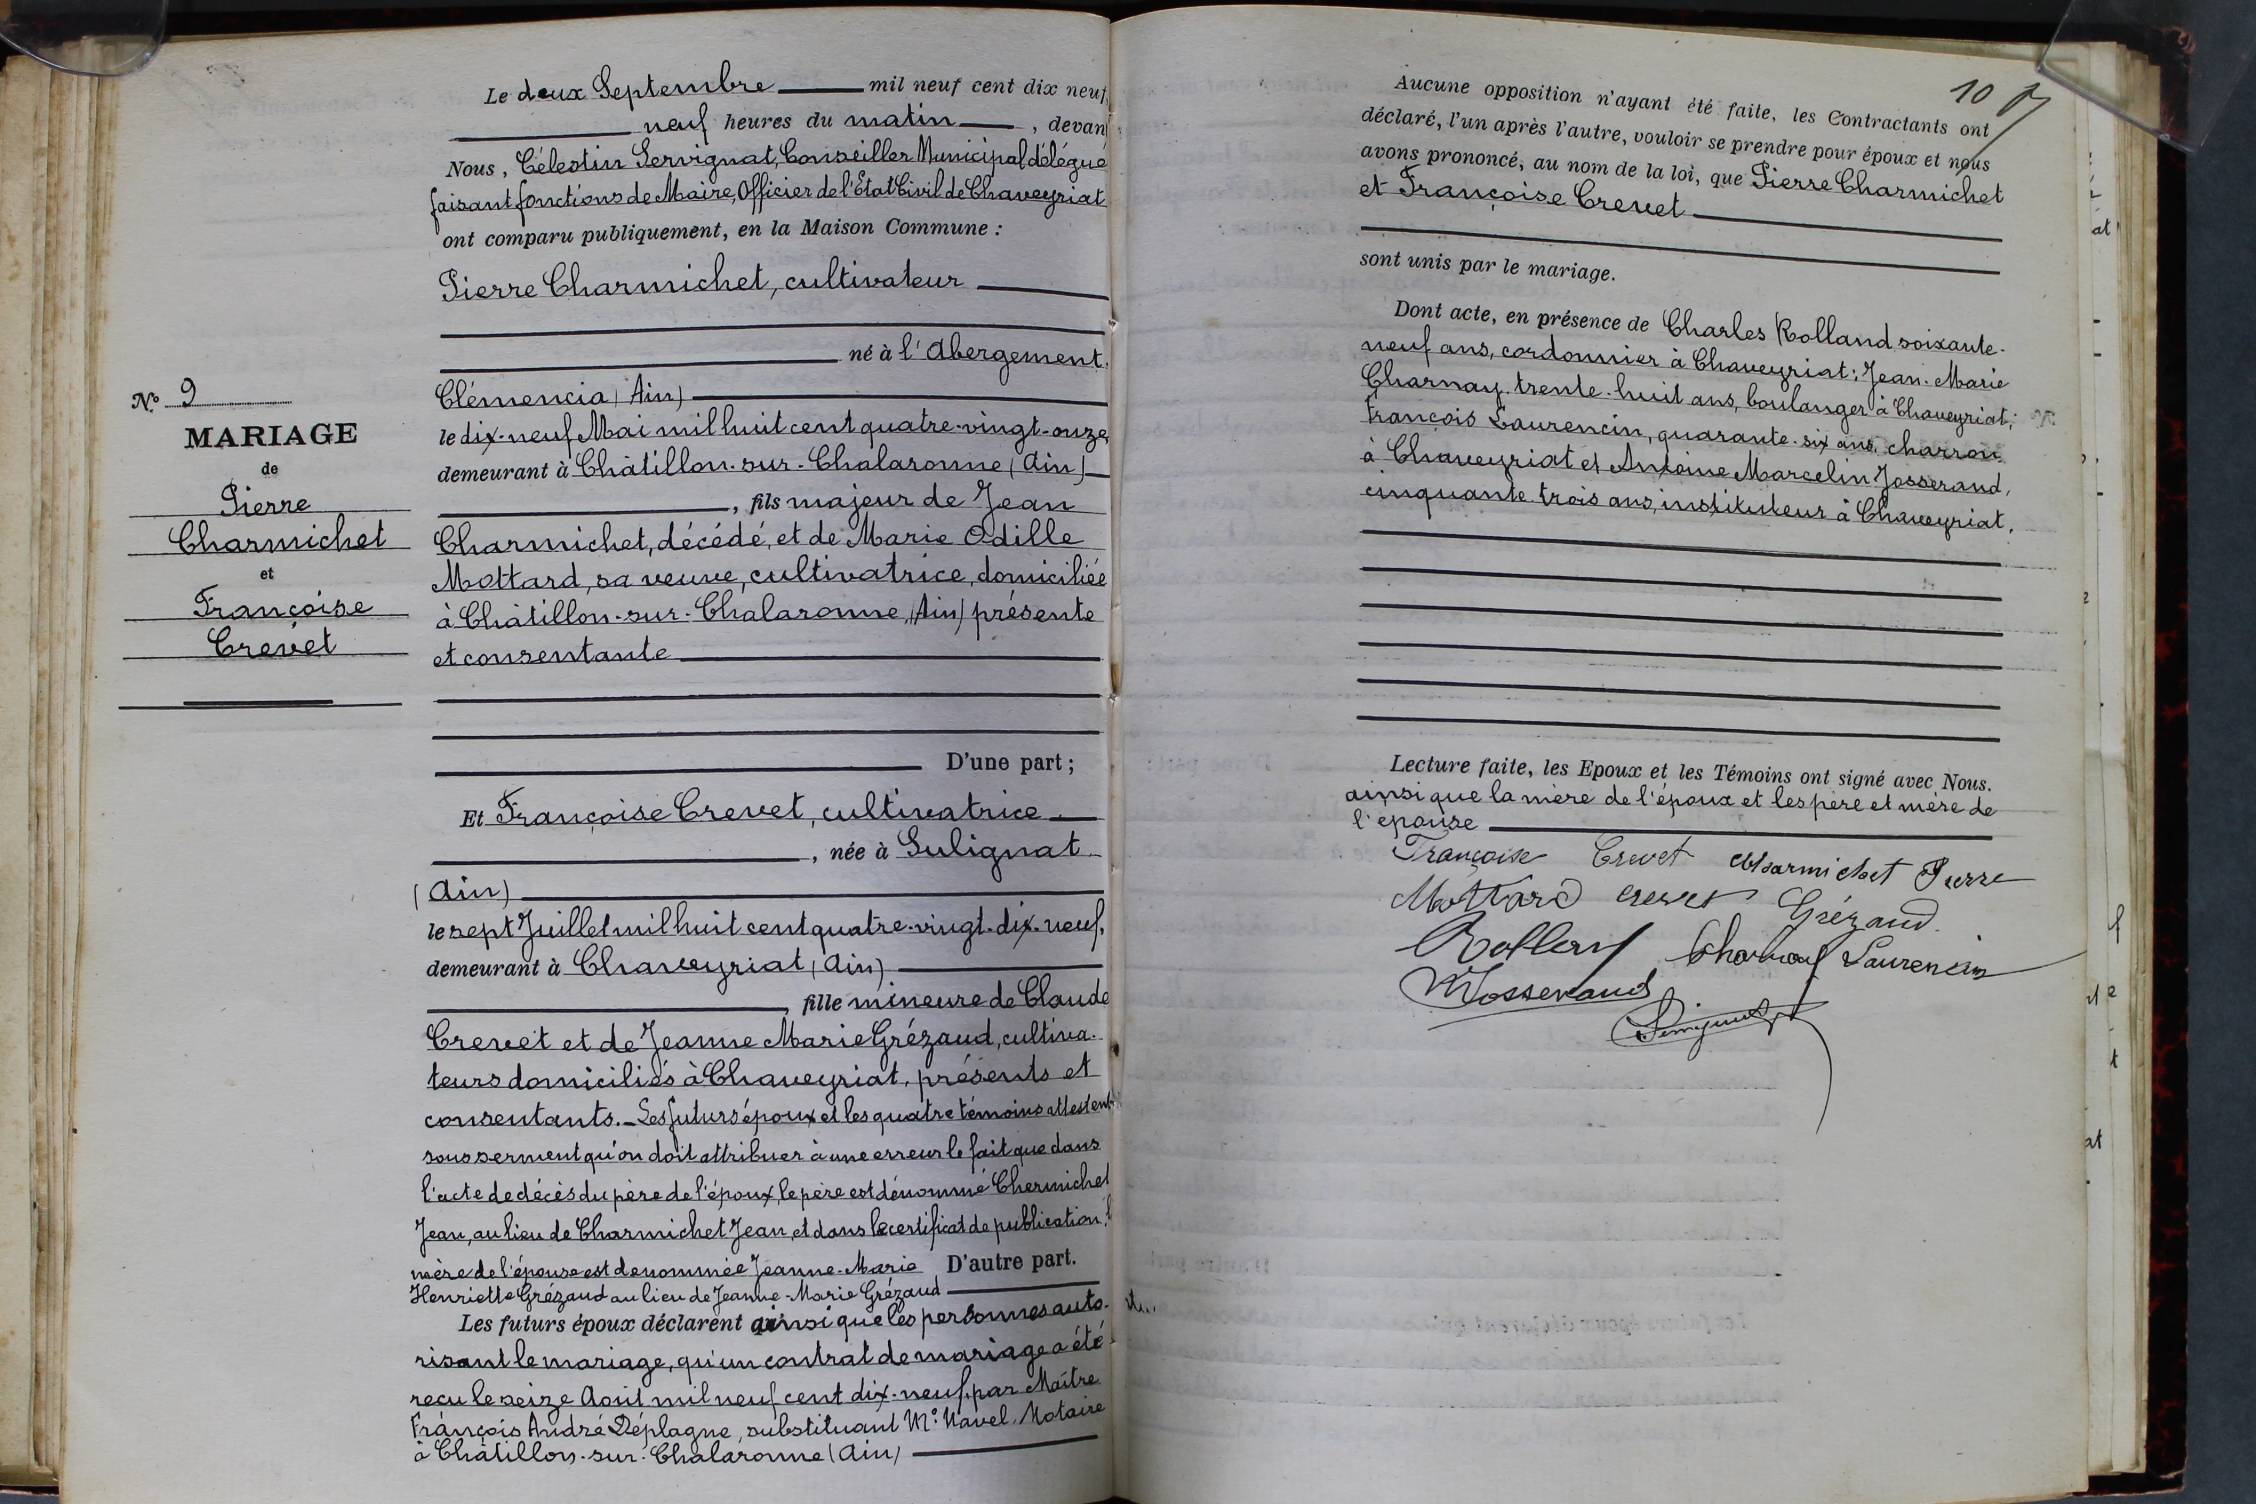 N.° 9
MARIAGE
de
Pierre
Charmichet
et
Françoise
Crevet
Le deux Septembre mil neuf cent dix neuf,
neuf heures du matin, devan
Nous, Célestin Servignat, Conseiller Municipal délégué
faisant fonctions de Maire, Officier de l'État Civil de Chaveyriat
ont comparu publiquement, en la Maison Commune :
Pierre Charmichet, cultivateur
né à l'Abergement.
Clémencia (Ain)
le dix-neuf Mai mil huit cent quatre-vingt-onze,
demeurant à Châtillon-sur-Chalaronne (Ain)
, fils majeur de Jean
Charmichet, décédé, et de Marie Odille
Mottard, sa veuve, cultivatrice, domiciliée
à Châtillon-sur-Chalaronne, (Ain) présente
et consentante
D'une part ;
Et Françoise Crevet, cultivatrice
, née à Sulignat
(Ain)
le sept Juillet mil huit cent quatre-vingt-dix-neuf,
demeurant à Chaveyriat (Ain)
, fille mineure de Claude
Crevet et de Jeanne Marie Grézaud, cultiva-
teurs domiciliés à Chaveyriat, présents et
consentants. - Les futurs époux et les quatre témoins attestent
sous serment qu'on doit attribuer à une erreur le fait que dans
l'acte de décès du père de l'époux, le père est dénommé Chermichet
Jean, au lieu de Charmichet Jean, et dans le certificat de publication, l
mère de l'épouse est dénommée Jeanne-Marie D'autre part.
Henriette Grézaud au lieu de Jeanne-Marie Grézaud
Les futurs époux déclarent ainsi que les personnes auto-
risant le mariage, qu'un contrat de mariage a été
reçu le seize Août mil neuf cent dix-neuf, par Maître
François André Déplagne, substituant M.e Navel, Notaire
à Châtillon-sur-Chalaronne (Ain)
10
Aucune opposition n'ayant été faite, les Contractants ont
déclaré, l'un après l'autre, vouloir se prendre pour époux et nous
avons prononcé, au nom de la loi, que Pierre Charmichet
et Françoise Crevet
sont unis par le mariage.
Dont acte, en présence de Charles Rolland soixante-
neuf ans, cordonnier à Chaveyriat ; Jean-Marie
Charnay, trente-huit ans, boulanger à Chaveyriat ;
François Laurencin, quarante-six ans, charron
à Chaveyriat et Antoine Marcelin Josserand,
cinquante trois ans, instituteur à Chaveyriat.
Lecture faite, les Epoux et les Témoins ont signé avec Nous.
ainsi que la mère de l'époux et les père et mère de
l'épouse
Françoise Crevet Charmichet Pierre
Mottard Crevet Grézaud
Rolland Charnay Laurencin
Josserand
Servignat